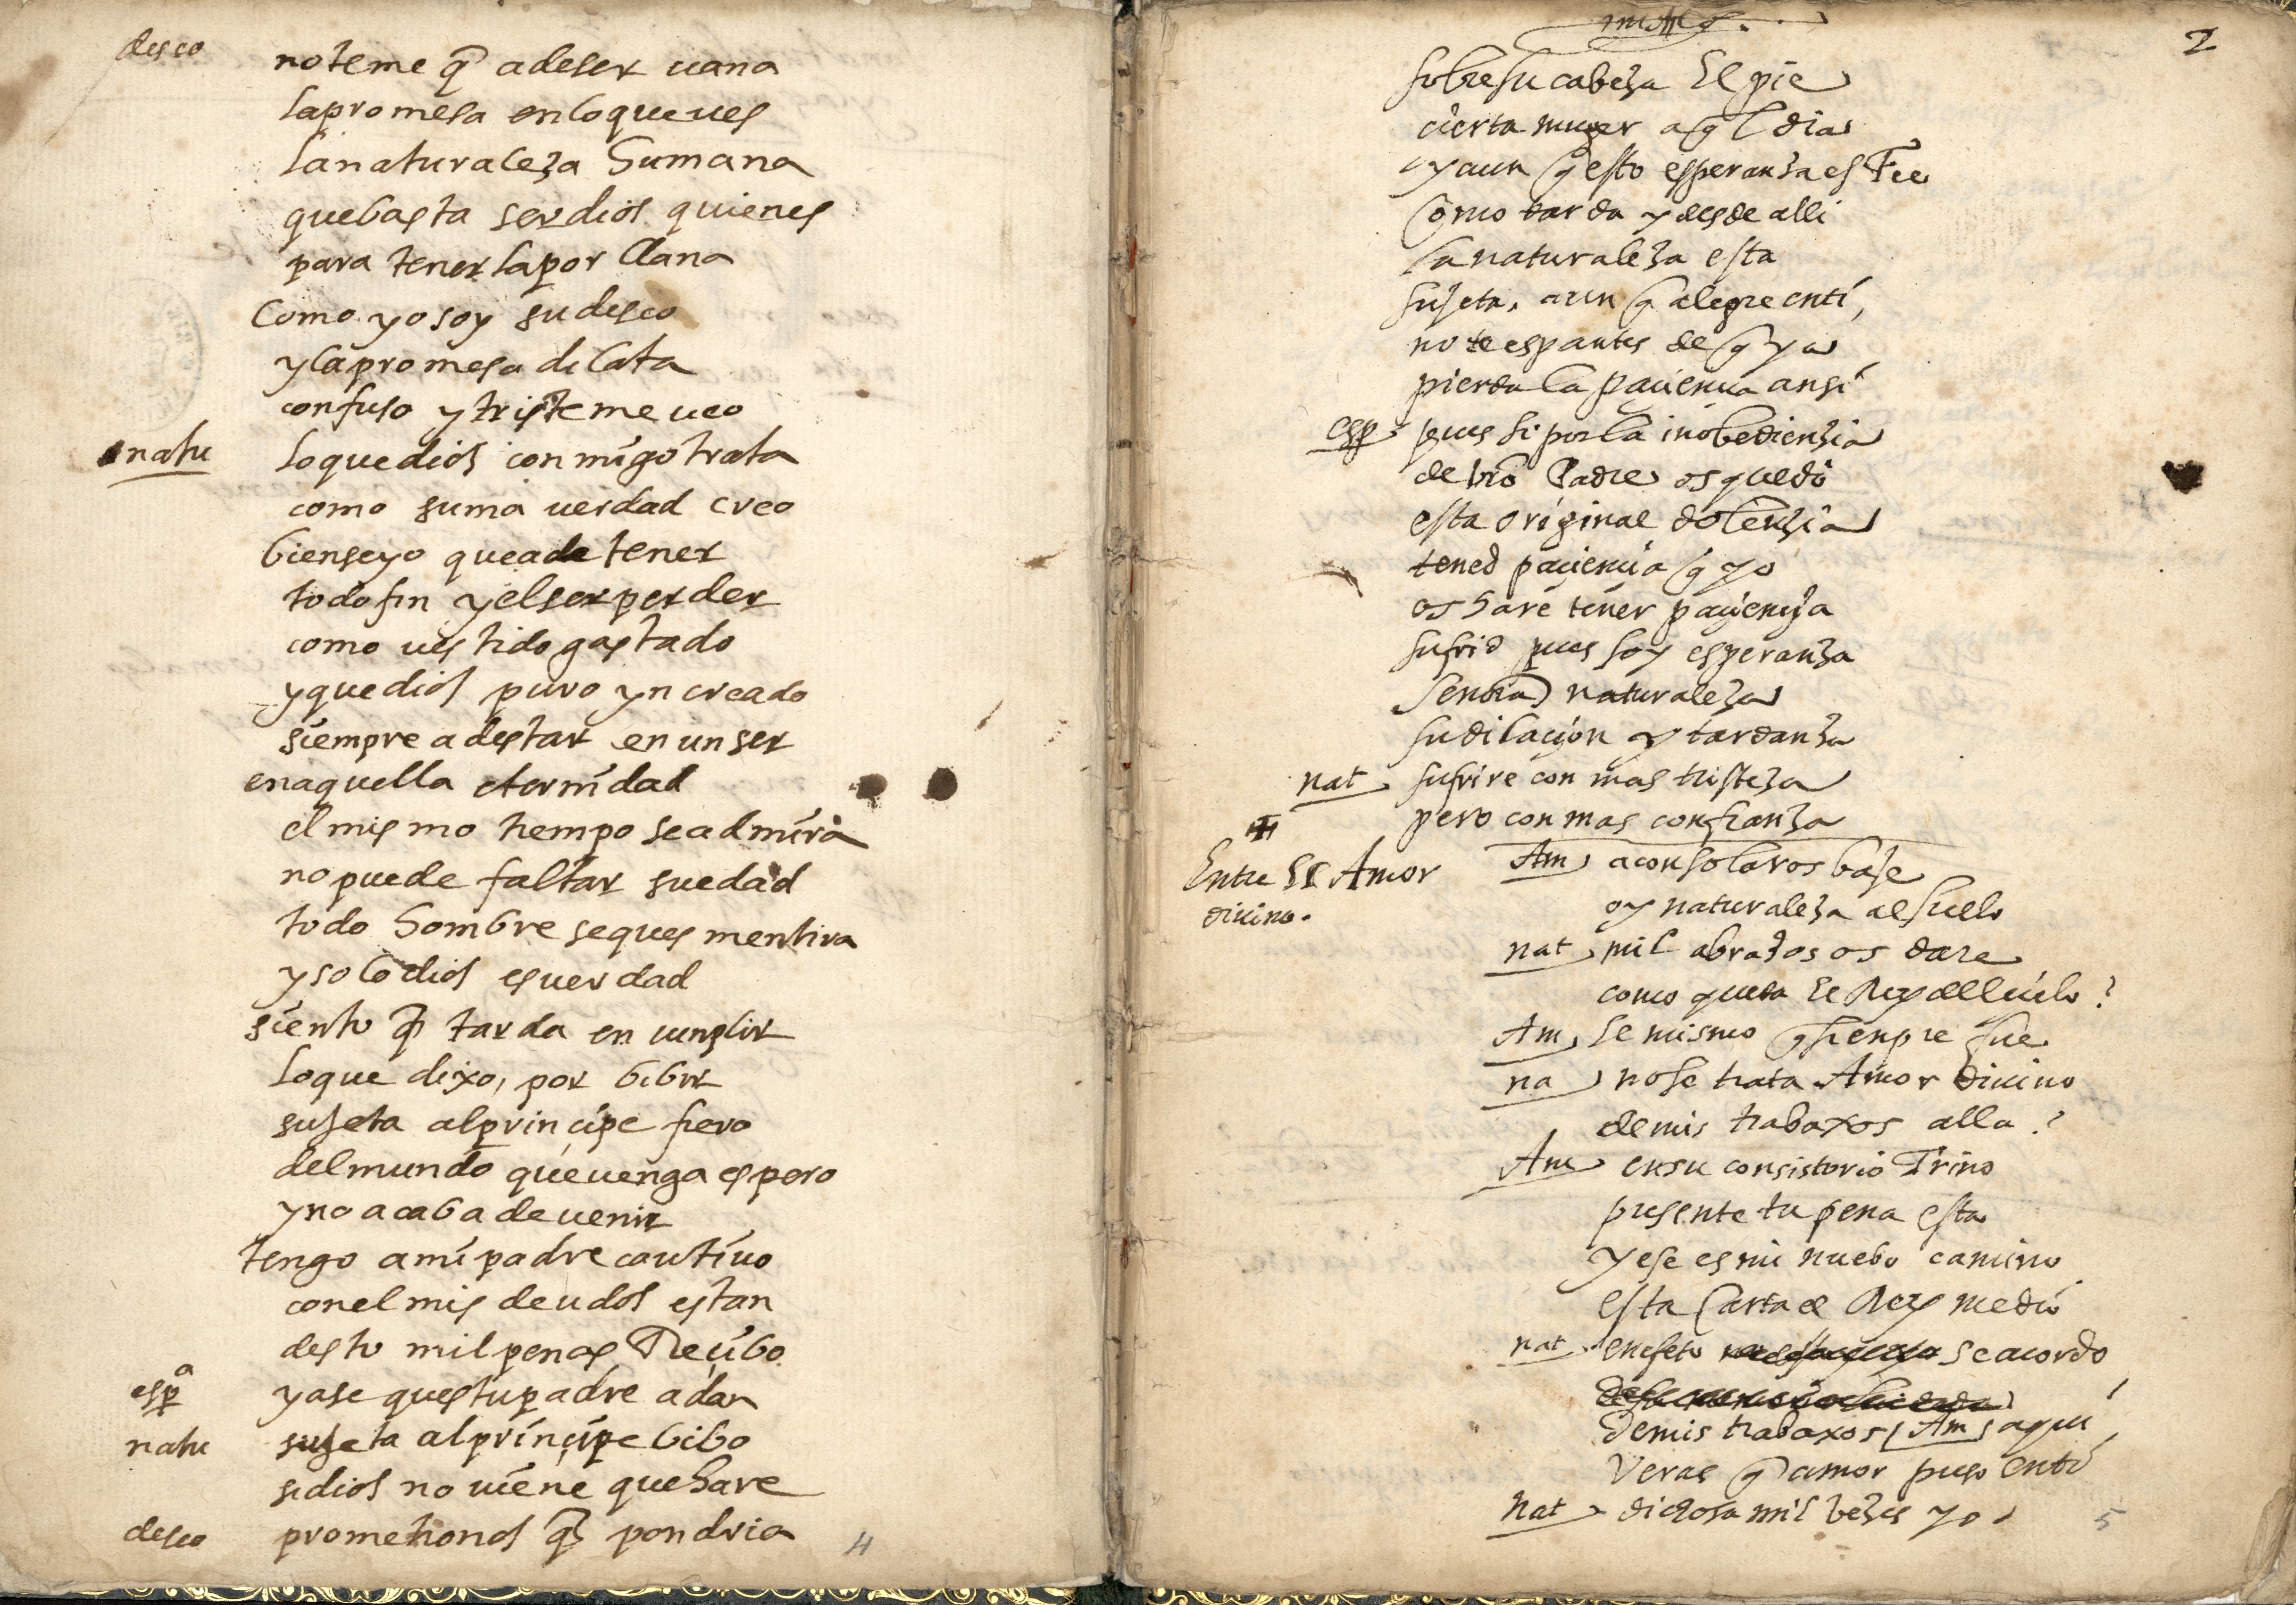 deseo no teme q̃ a de ser uana
la promesa en lo que ues
la naturaleza humana
que basta ser dios quien es
para tenerla por llana
Como yo soy su deseo
y la promesa dilata
confuso y triste me ueo
natu lo que dios conmigo trata
como suma uerdad creo
bien se yo que a de tener
todo fin y el ser perder
como uestido gastado
y que dios puro yncreado
siempre a destar en un ser
en aquella eternidad
el mismo tiempo se admira
no puede faltar su edad
todo hombre se ques mentira
y solo dios es uerdad
siento q̃ tarda en cunplir
lo que dixo, por bibir
sujeta al principe fiero
del mundo que uenga espero
y no acaba de uenir
tengo a mi padre cautiuo
con el mis deudos estan
desto mil penas Reçibo
espª ya se ques tu padre adan
natu sujeta al prinçipe bibo
si dios no uiene que hare
deseo prometionos q̃ pondria
4
2
sobre su cabeza El pie
cierta muger aq̃l dia
y aun q̃ esto esperanza es Fee
Como tarda y desde alli
la naturaleza esta
sujeta, aun q̃ alegre en ti,
no te espantes de q̃ ya
pierda la paciencia ansi
esp pues si por la inobedienzia
de vrõ Padre os quedo
esta original dolenzia
tened paciencia q̃ yo
os hare tener pacienzia
sufrid pues soy esperanza
Señora naturaleza
su dilaçion y tardanza
nat sufrire con mas tristeza
pero con mas confianza
Entre El Amor
diuino.
Am a consolaros baje
oy naturaleza al suelo
nat mil abrazos os dare
como queda El Rey del cielo?
Am El mismo q̃ sienpre fue
na no se trata Amor Diuino
de mis trabaxos alla?
Am en su consistorio Trino
presente tu pena esta
y ese es mi nuebo camino
esta Carta el Rey me dio
nat en efeto se acordo
de mis trabaxos / Am aqui
Veras q̃ amor puso en ti
nat dichosa mil bezes yo
5